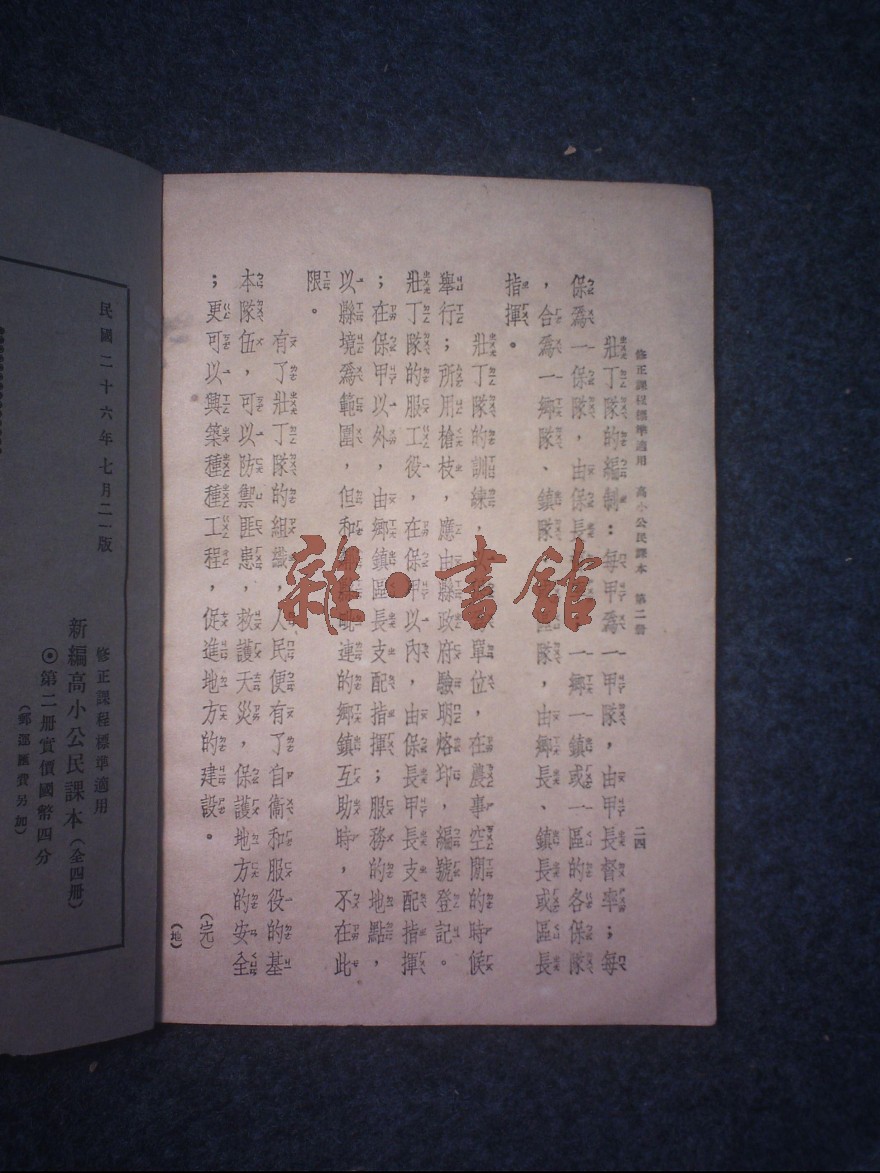 修正課程標準適用　高小公民課本　第二册　二四
壯丁隊的編制：每甲爲一甲隊，由甲長督率；每
保爲一保隊，由保長　一鄉一鎮或一區的各保隊
，合爲一鄉隊、鎮隊　區隊，由鄉長、鎮長或區長
指揮。
壯丁隊的訓練，　單位，在農事空閒的時候
舉行；所用槍枝，應由縣政府驗明烙印，編號登記。
壯丁隊的服工役，在保甲以內，由保長甲長支配指揮
；在保甲以外，由鄉鎮區長支配指揮；服務的地點，
以縣境爲範圍，但和　毗連的鄉鎮互助時，不在此
限。
有了壯丁隊的組織，人民便有了自衞和服役的基
本隊伍，可以防禦匪患，救護天災，保護地方的安全
；更可以興築種種工程，促進地方的建設。
（完）
（地）
雜·書館
民國二十六年七月二一版
修正課程標準適用
新編高小公民課本（全四册）
⊙第二册實價國幣四分
（郵運匯費另加）